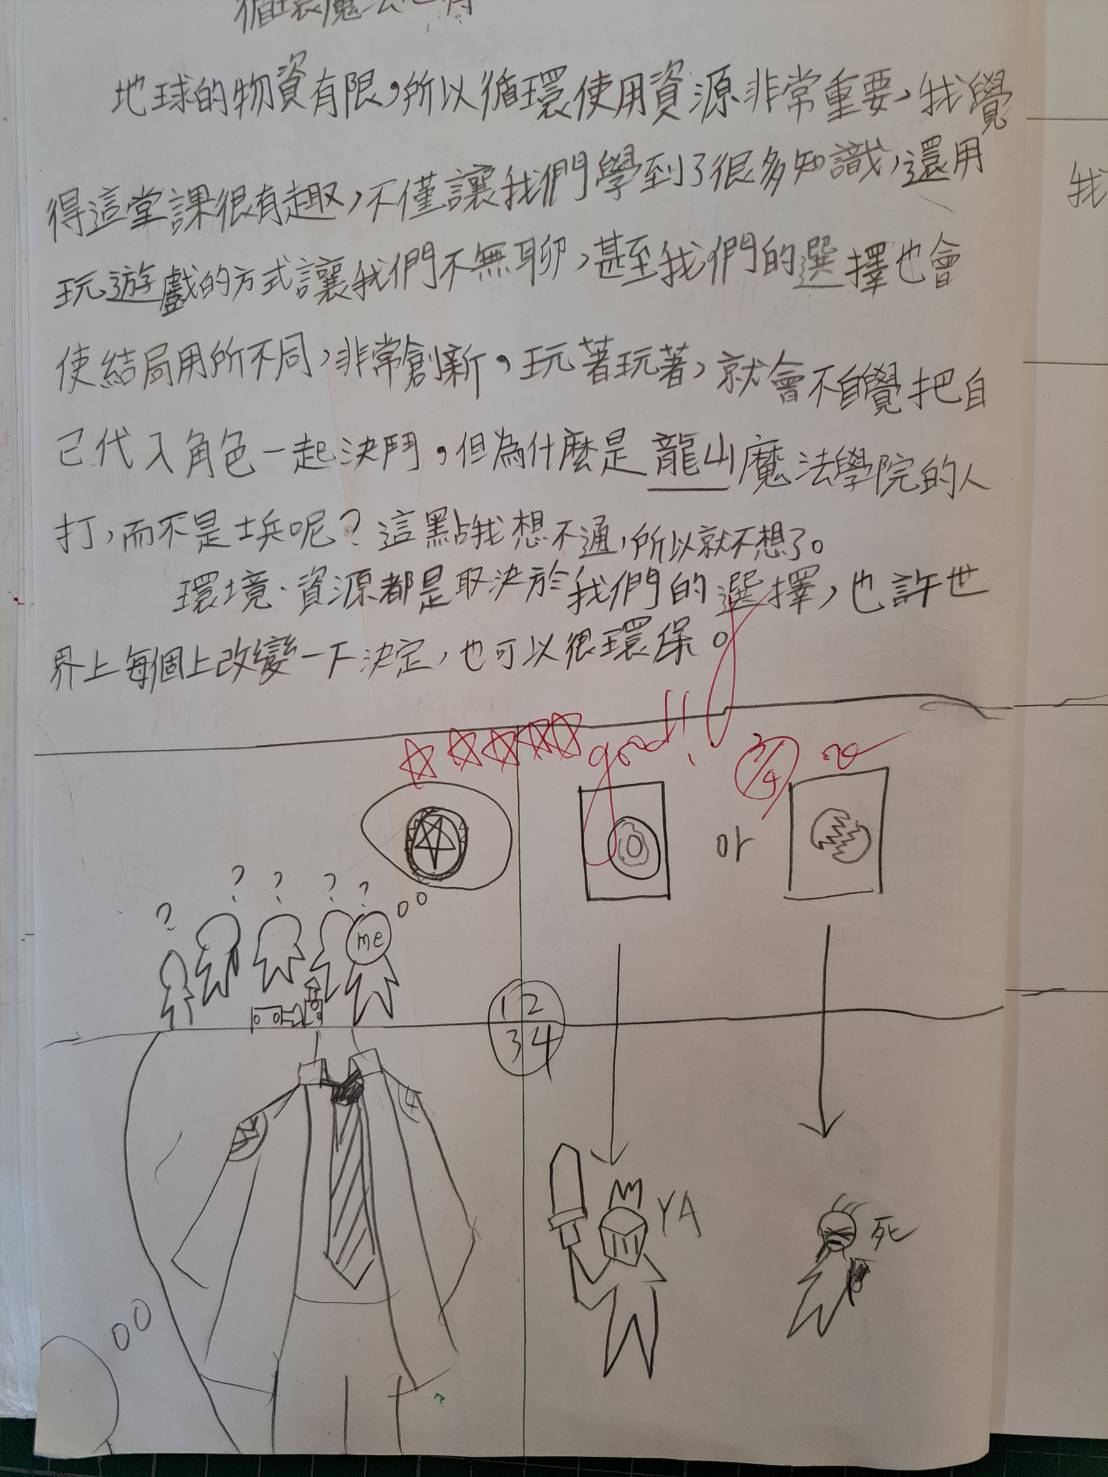 循環魔法心得
地球的物資有限，所以循環使用資源非常重要，我覺
得這堂課很有趣，不僅讓我們學到了很多知識，還用
玩遊戲的方式讓我們不無聊，甚至我們的選擇也會
使結局用所不同，非常創新。玩著玩著，就會不自覺把自
己代入角色一起決鬥。但為什麼是龍山魔法學院的人
打，而不是士兵呢？這點我想不通，所以就不想了。
環境、資源都是取決於我們的選擇，也許世
界上每個上改變一下決定，也可以很環保。
good!!
or
? ? ? ? ?
me
1 2
3 4
YA
死
?
我